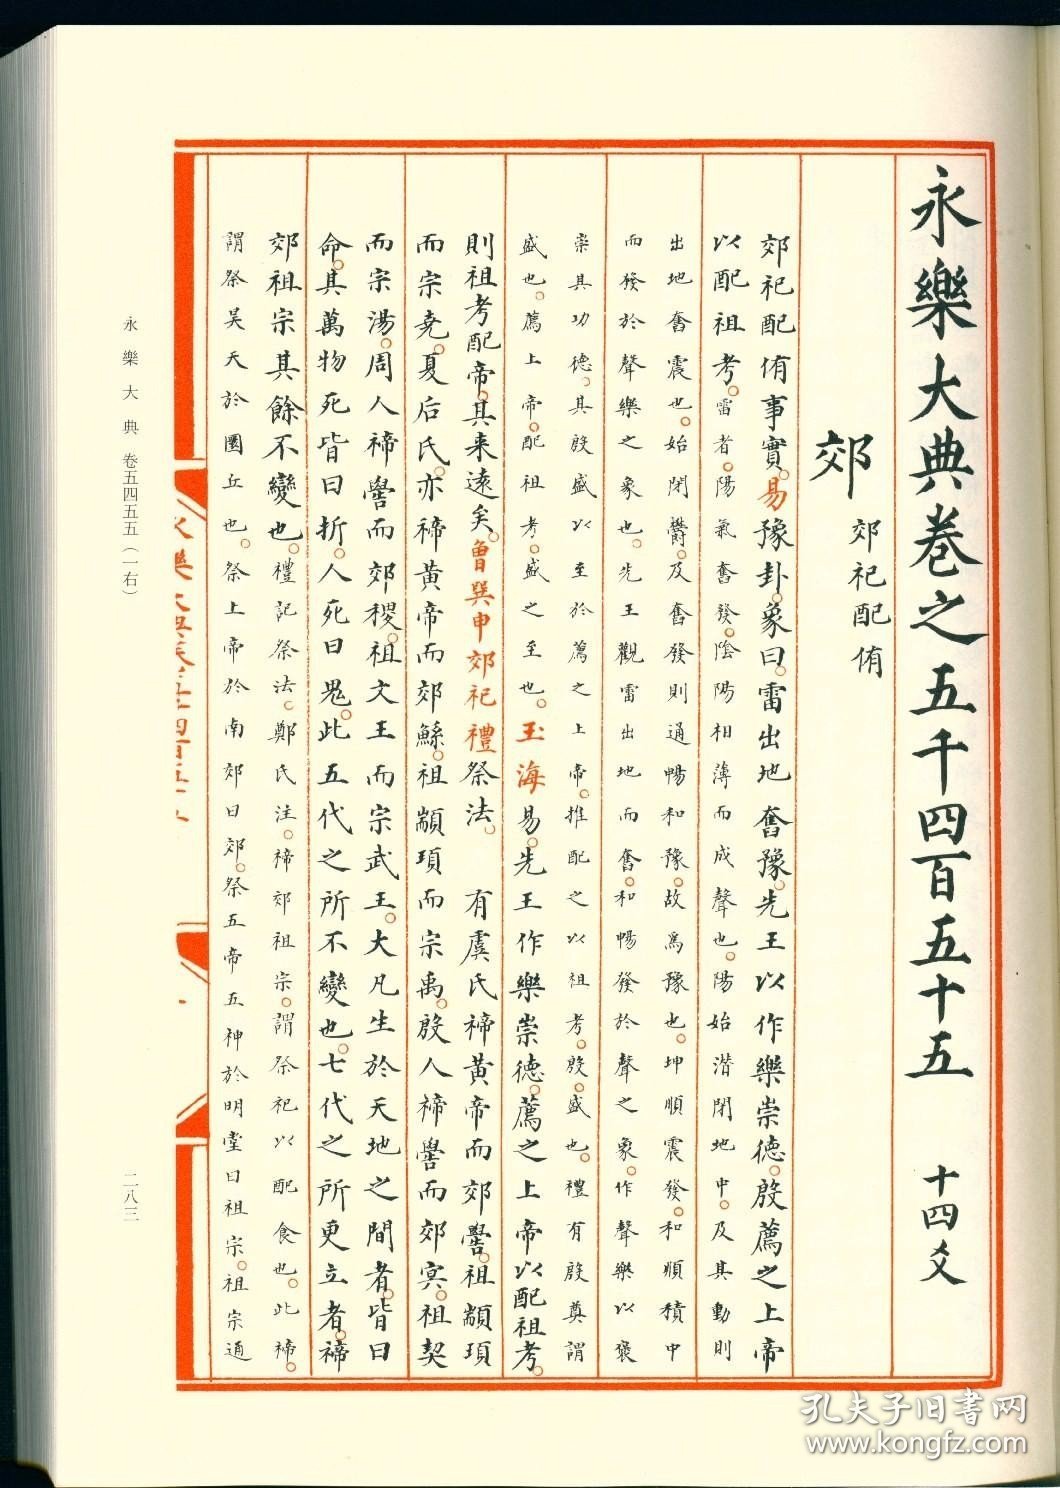 永樂大典卷之五千四百五十五 十四爻
郊 郊祀配侑
郊祀配侑事實。易豫卦。象曰。雷出地奮豫。先王以作樂崇德。殷薦之上帝
以配祖考。雷者。陽氣奮發。陰陽相薄而成聲也。陽始潛閉地中。及其動則
出地奮震也。始閉鬱。及奮發則通暢和豫。故爲豫也。坤順震發。和順積中
而發於聲樂之象也。先王觀雷出地而奮。和暢發於聲之象。作聲樂以褒
崇其功德。其殷盛以至於薦之上帝。推配之以祖考。殷。盛也。禮有殷奠謂
盛也。薦上帝。配祖考。盛之至也。玉海易。先王作樂崇德。薦之上帝以配祖考。
則祖考配帝。其来遠矣。曾巽申郊祀禮祭法。 有虞氏禘黃帝而郊嚳。祖顓頊
而宗堯。夏后氏。亦禘黃帝而郊鯀。祖顓頊而宗禹。殷人禘嚳而郊冥。祖契
而宗湯。周人禘嚳而郊稷。祖文王而宗武王。大凡生於天地之間者。皆曰
命。其萬物死皆曰折。人死曰鬼。此五代之所不變也。七代之所更立者。禘
郊祖宗其餘不變也。禮記祭法。鄭氏注。禘郊祖宗。謂祭祀以配食也。此禘。
謂祭昊天於圜丘也。祭上帝於南郊曰郊。祭五帝五神於明堂曰祖宗。祖宗通
永樂大典卷五千四百五十五
一
永樂大典 卷五四五五(一右)
二八三
孔夫子旧书网
www.kongfz.com